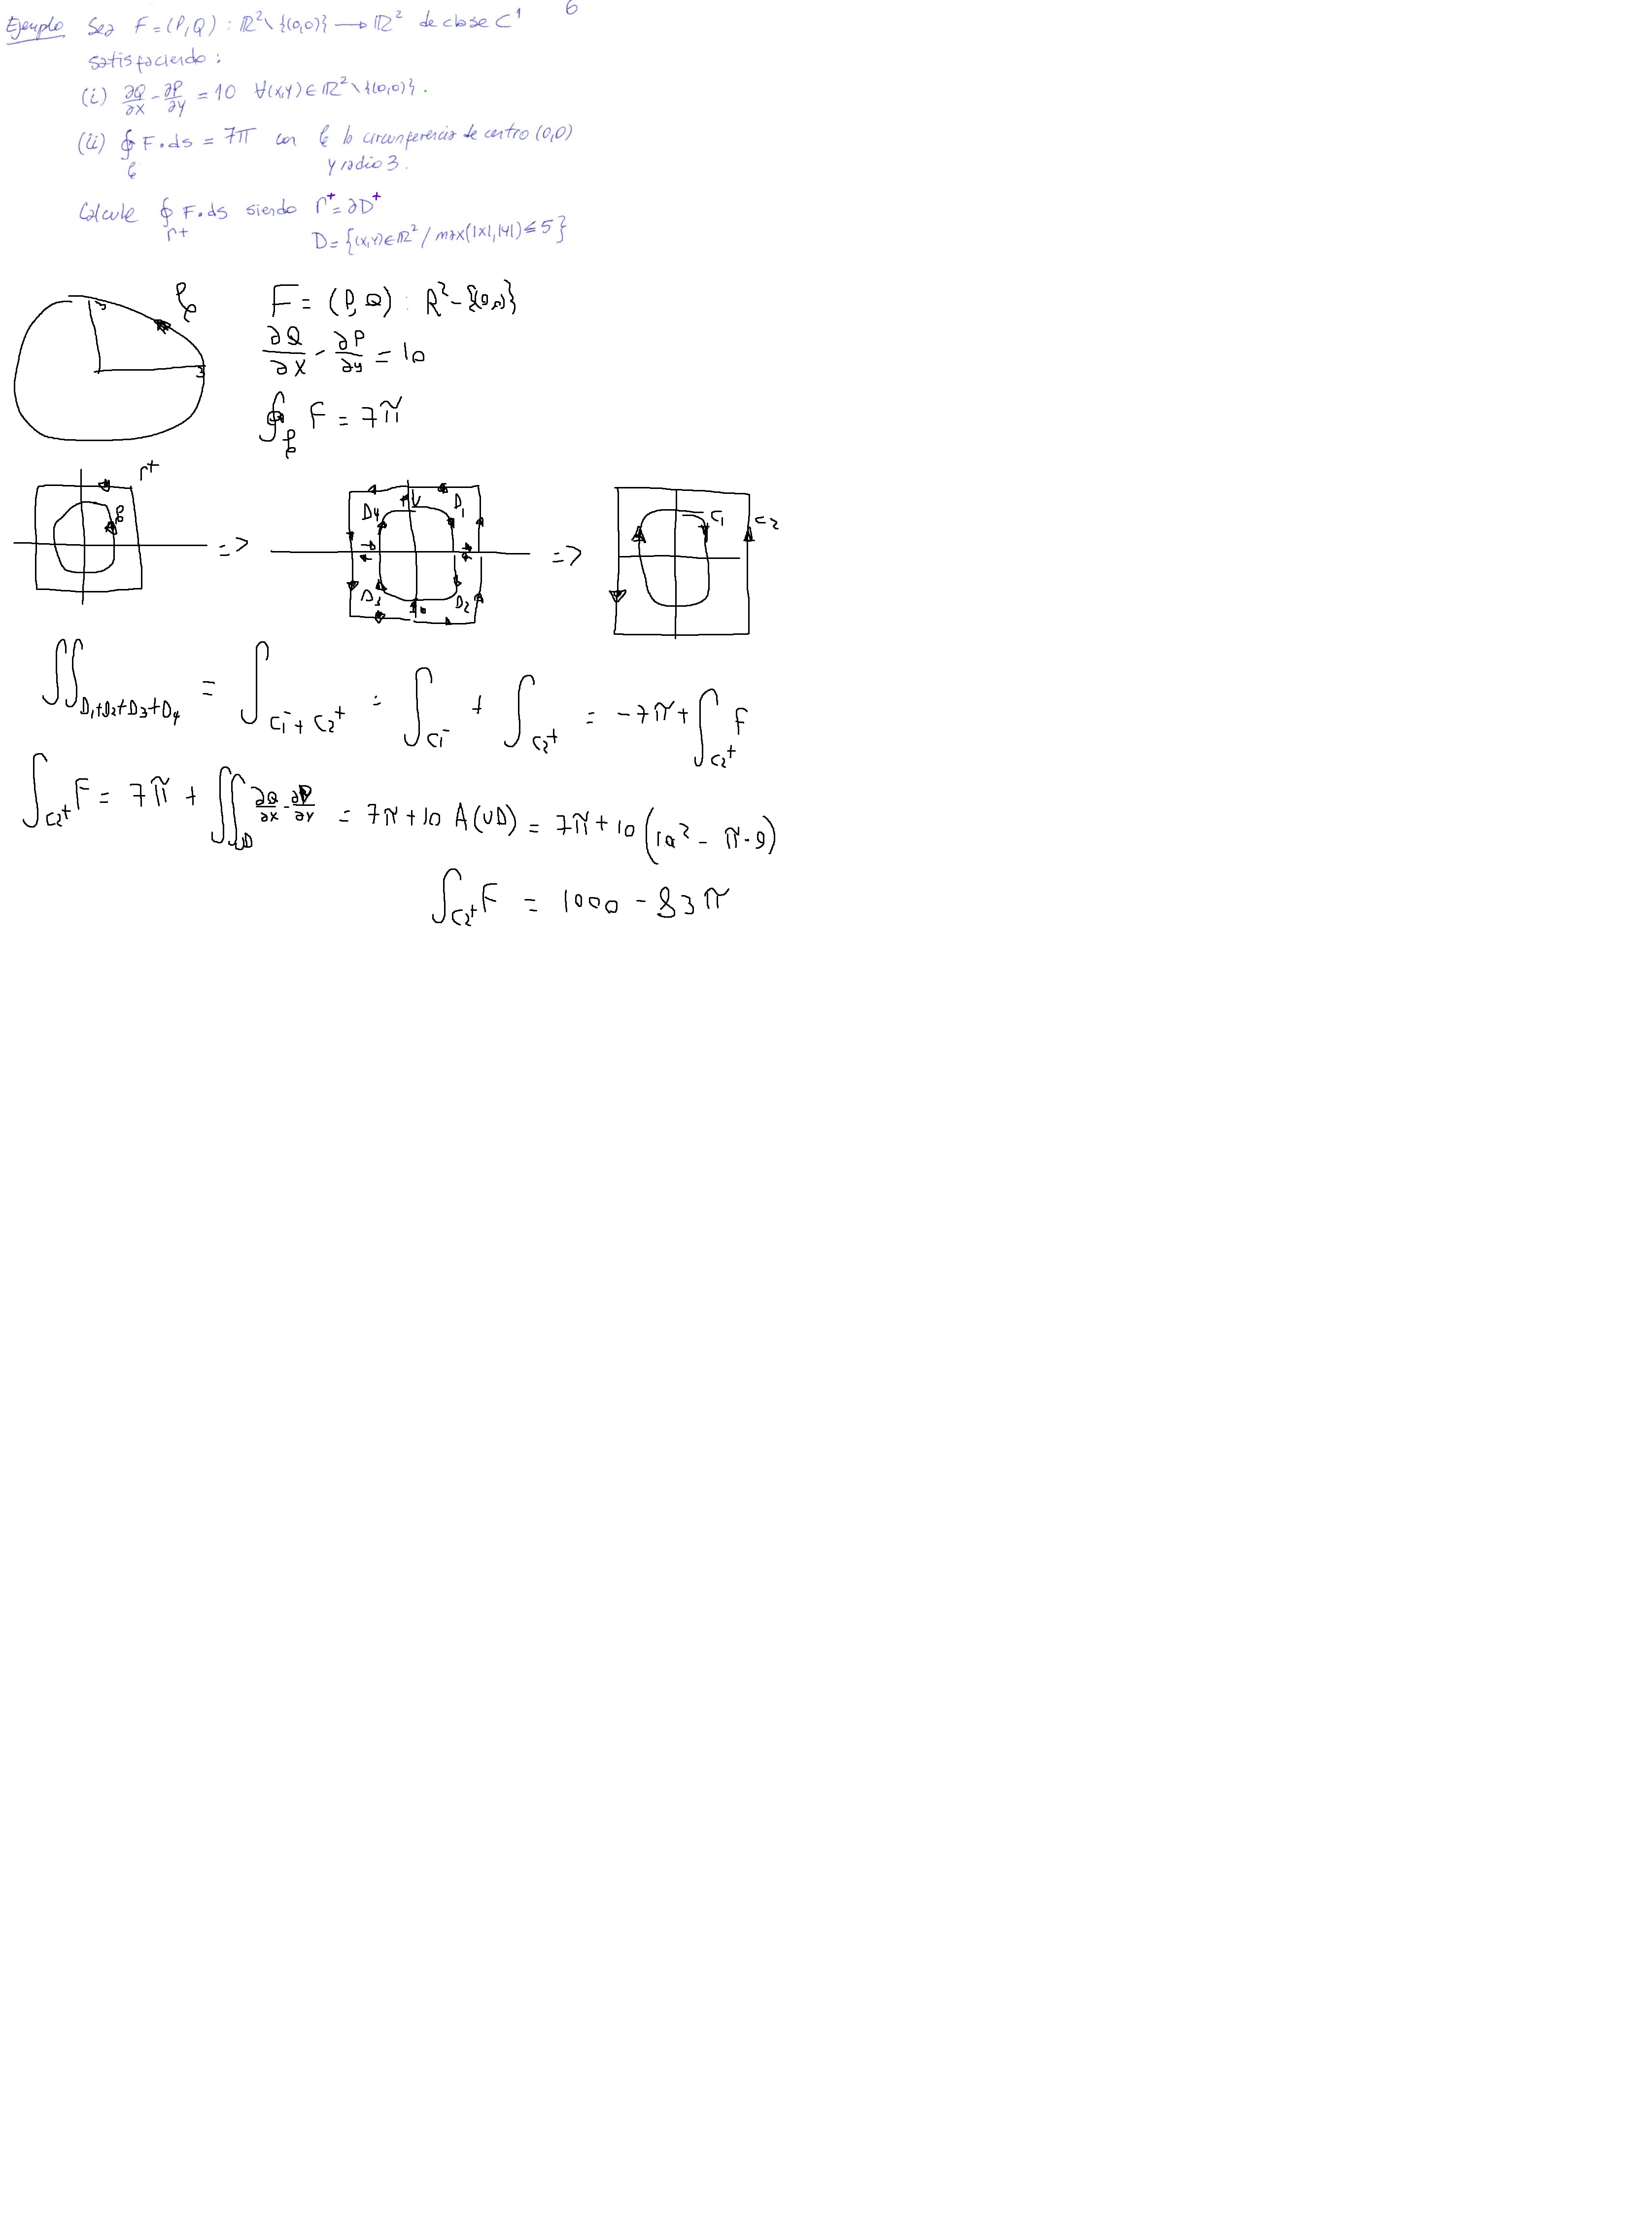 6
Ejemplo Sea F = (P,Q) : ℝ²\{(0,0)} → ℝ² de clase C¹
satisfaciendo :
(i) ∂Q/∂x - ∂P/∂y = 10 ∀(x,y) ∈ ℝ²\{(0,0)}.
(ii) ∮_C F·ds = 7π con C la circunferencia de centro (0,0)
y radio 3.
Calcule ∮_Γ+ F·ds siendo Γ⁺ = ∂D⁺
D = {(x,y) ∈ ℝ² / max(|x|,|y|) ≤ 5}
3 C
3
F = (P,Q) : R² - {(0,0)}
∂Q/∂x - ∂P/∂y = 10
∮_C F = 7π
Γ+
C
=>
D4 D1
D3 D2
=>
C1 C2
∬_D1+D2+D3+D4 = ∫_C1⁻ + C2⁺ = ∫_C1⁻ + ∫_C2⁺ = -7π + ∫_C2⁺ F
∫_C2⁺ F = 7π + ∬_UD ∂Q/∂x - ∂P/∂y = 7π + 10 A(UD) = 7π + 10 (10² - π·9)
∫_C2⁺ F = 1000 - 83π